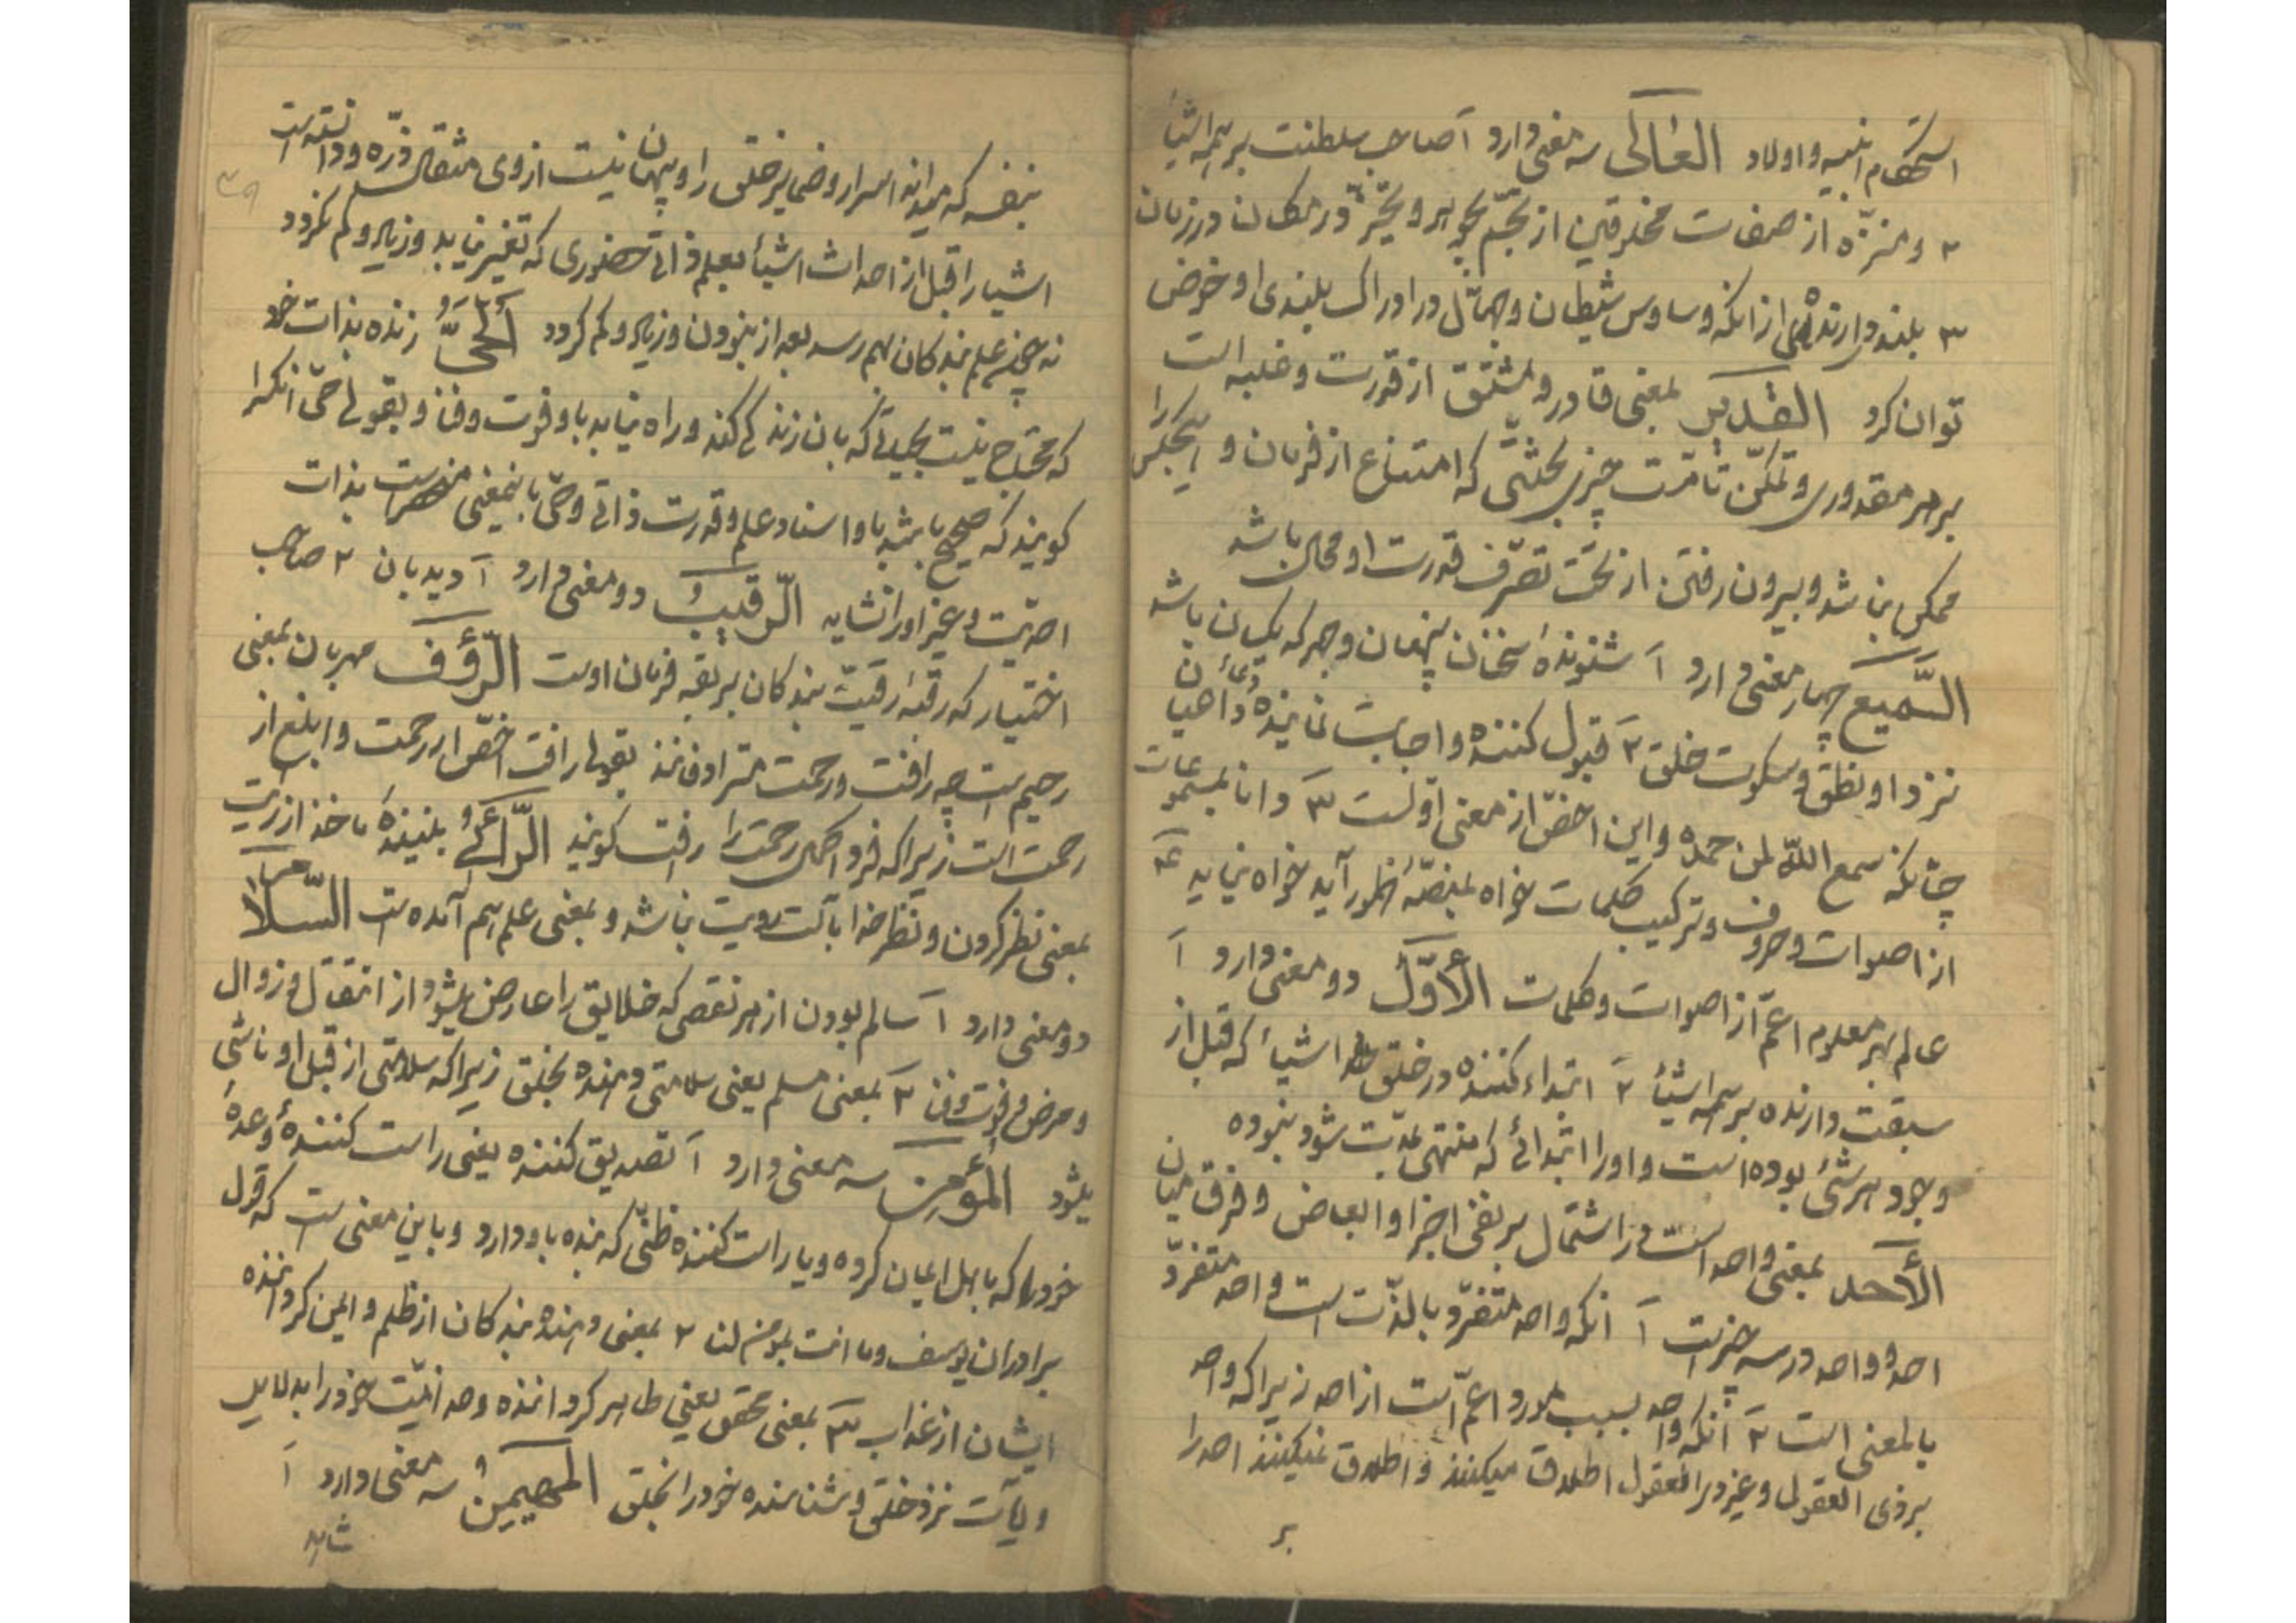 استحکام ابنیه و اولاد العالی سه معنی دارد آ صاحب سلطنت بر همه اشیأ
۲ و منزّه از صفات مخلوقین از تجسّم و تحیّز در مکان و در زمان
۳ بلند دارنده از آنکه وساوس شیطان و جهّال در ادراک بلندی او خوض
توان کرد القدیر بمعنی قادر و مشتق از قدرت و غلبه است
بر هر مقدوری و تمکّن تامّ بحیثیتی که امتناع از فرمان او هیچکس را
ممکن نباشد و بیرون رفتن از تحت تصرّف قدرت او محال باشد
السّمیع چهار معنی دارد آ شنوندهٔ سخنان پنهان و جهر که یکسان باشد
نزد او نطق و سکوت خلق ۲ قبول کننده و اجابت نمایندهٔ دعأ
چنانکه سمع الله لمن حمده و این اخصّ از معنی اولست ۳ دانا بمسموعات
از اصوات و حروف و ترکیب کلمات خواه بمنصّهٔ ظهور آید خواه نیاید ۴
عالم بهر معلوم اعمّ از اصوات و کلمات الأوّل دو معنی دارد آ
سبقت دارنده بر همه اشیأ ۲ ابتداء کننده در خلق اشیأ که قبل از
وجود هر شئ بوده است و او را ابتدائی که منتهی بمدّت شود نبوده
الأحد بمعنی واحد است در اشتمال بر نفی اجزا و ابعاض و فرق میان
احد و واحد در سه چیز است آ آنکه واحد متفرّد بالذّات است و احد متفرّد
بالمعنی است ۲ آنکه واحد بسبب مورد اعمّ است از احد زیرا که واحد
بر ذی العقول و غیر ذی العقول اطلاق میکنند و اطلاق نمیکنند احد را
بر
بنفسه که میداند اسرار و ضمایر خلق را و پنهان نیست از وی مثقال ذرّه و دانسته است
اشیا را قبل از احداث اشیأ بعلم ذاتی حضوری که تغییر نیابد و زیاد و کم نگردد
نه چون علم بندکان بهم رسد بعد از نبودن و زیاد و کم گردد ألحیّ زنده بذات خود
که محتاج نیست بحیاتی که بآن زندگی کند و راه نیابد باو فوت و فنا و بقولی حیّ آنکرا
گویند که صحیح باشد باو اسناد علم و قدرت ذاتی و حیّ باینمعنی منحصر است بذات
احدیّت و غیر او را نشاید الرّقیب دو معنی دارد آ دیدبان ۲ صاحب
اختیار که رقبهٔ رقیّت بندکان بربقه فرمان اوست الرّؤف مهربان بمعنی
رحیم است چه رافت و رحمت مترادفانند بقولی رافت اخصّ از رحمت و ابلغ از
رحمت است زیرا که فرد اکمل رحمت را رافت گویند الرّائی بینندهٔ ماخذ از رؤیت
بمعنی نظر کردن و نظر خدا بآلت رویت نباشد و بمعنی علم هم آمده است السّلام
دو معنی دارد آ سالم بودن از هر نقصی که خلایق را عارض میشود از انتقال و زوال
و مرض و فوت و فنا ۲ بمعنی مسلم یعنی سلامتی دهنده بخلق زیرا که سلامتی از قبل او ناشی
میشود المؤمن سه معنی دارد آ تصدیق کننده یعنی راست کنندهٔ وعدهٔ
خود را که باهل ایمان کرده و یا راست کننده ظنّی که بنده باو دارد و باین معنی است که قول
برادران یوسف و ما انت بمؤمن لنا ۲ بمعنی دهنده بندکان از ظلم و ایمن گرداننده
ایشان از عذاب ۳ بمعنی محقق یعنی ظاهر گرداننده وحدانیّت خود را بدلایل
و آیات نزد خلق و شناسنده خود را بخلق المهیمن سه معنی دارد آ
شاهد